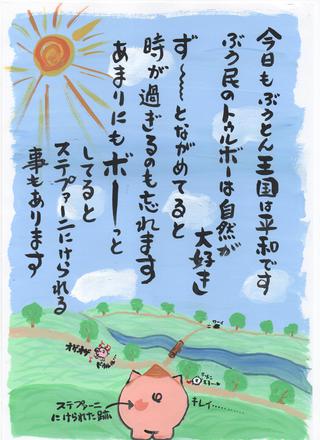 今日もぶうとん王国は平和です
ぶう民のトゥルボーは自然が
大好き
ず〜〜とながめてると
時が過ぎるのも忘れます
あまりにもボーーっと
してると
ステファーニにけられる
事もあります
ステファーニ
にけられた跡
キレイ…………